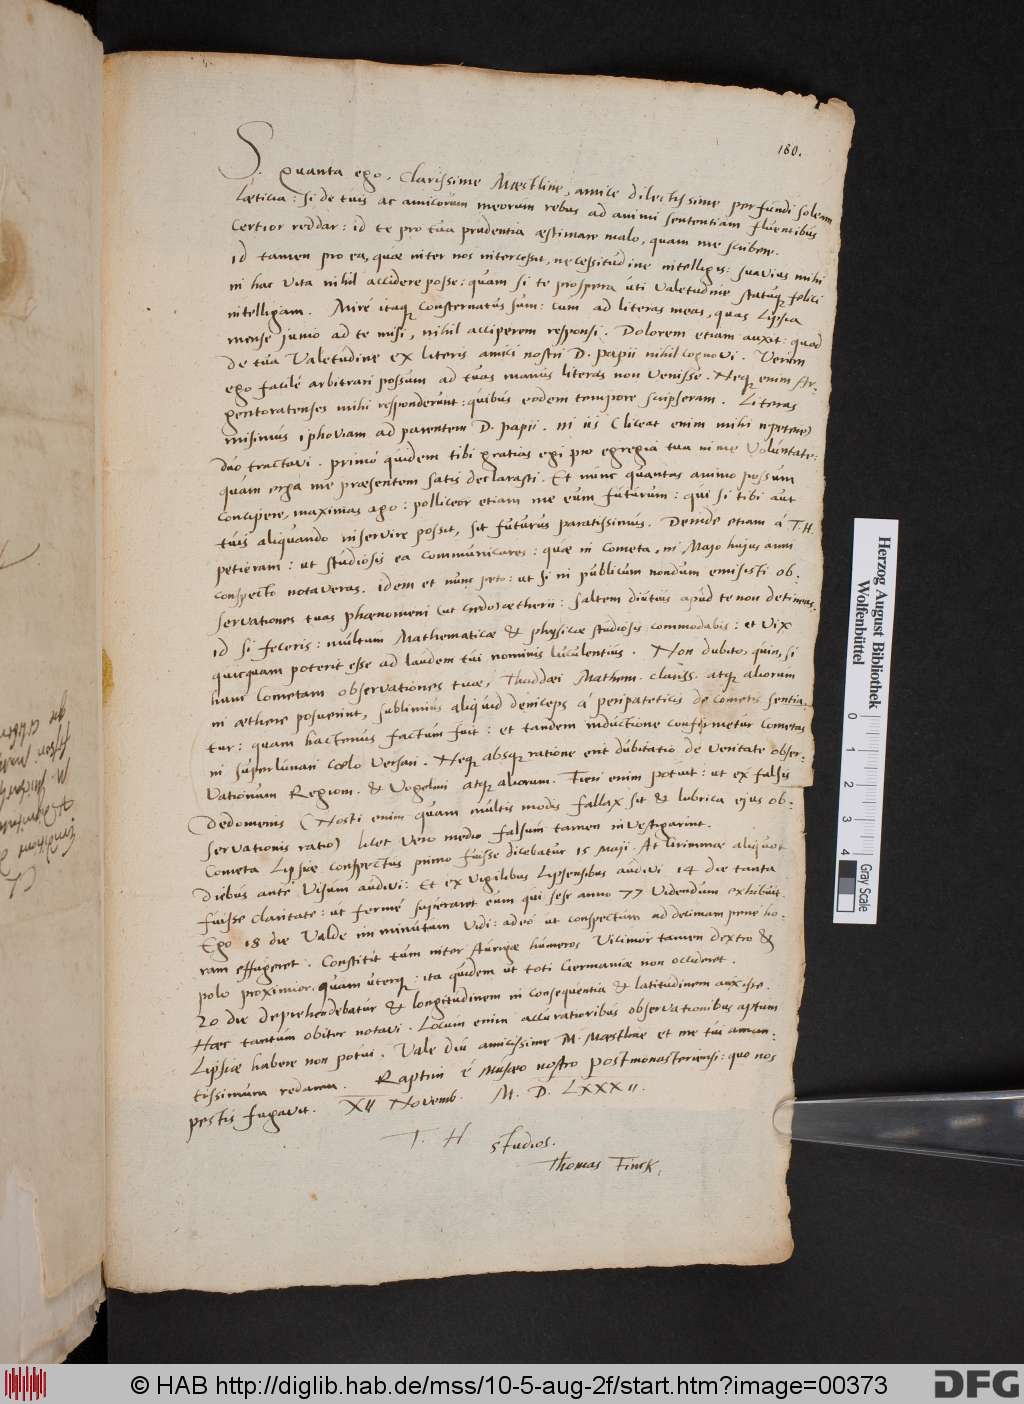 180.
S. Quanta ego, Clarissime Mæstline, amice dilectissime perfundi soleam
Lætitia: si de tuis ac amicorum meorum rebus ad animi sententiam fluentibus
Certior reddar: id te pro tua prudentia æstimare malo, quam me scribere.
Id tamen pro ea, quæ inter nos intercessit, necessitudine intelligis: suavius mihi
in hac vita nihil accidere posse: quam si te prospera uti valetudine statuq felici
intelligam. Miré itaq consternatus sum: cum ad literas meas, quas Lipsia
mense junio ad te misi, nihil acciperem responsi. Dolorem etiam auxit: quod
de tua Valetudine ex literis amici nostri D. Papii nihil cognovi. Verum
ego facilé arbitrari possum ad tuas manus literas non venisse. Neq enim Ar-
gentoratenses mihi responderunt: quibus eodem tempore scripseram. Literas
misimus Iphoviam ad parentem D. Papii. in iis (liceat enim mihi repetere)
duo tractavi. primó quidem tibi gratias egi pro egregia tua in me Voluntate:
quam erga me præsentem satis declarasti. Et nunc quantas animo possum
concipere, maximas ago: polliceor etiam me eum futurum: qui si tibi aut
tuis aliquando inservire possit, sit futurus paratissimus. Deinde etiam á T. H.
petieram: ut studiosis ea communicares: quæ in cometa, in Majo hujus anni
conspecto notaveras. idem et nunc peto: ut si in publicum nondum emisisti ob-
servationes tuas phænomeni (ut credo) ætherii: saltem diutius apud te non detineas.
id si feceris: multum Mathematicæ & physicæ studiosis commodabis: et vix
quicquam poterit esse ad laudem tui nominis luculentius. Non dubito, quin, si
hunc Cometam observationes tuæ, Thaddæi Mathem. clariss. atq aliorum
in æthere posuerint, sublimius aliquid deinceps á peripateticis de cometis sentia-
tur: quam hactenus factum fuit: et tandem inductione confirmetur cometas
in superlunari cœlo versari. Neq absq ratione erit dubitatio de veritate obser-
vationum Regiom. & Vogelini atq aliorum. Fieri enim potuit: ut ex falsis
dedomenis (Nosti enim quam multis modis fallax sit & lubrica ejus ob-
servationis ratio) licet vero medio falsum tamen investigarint.
Cometa Lipsiæ conspectus primo fuisse dicebatur 15 Maji. At Grimmæ aliquot
diebus anté visum audivi: Et ex vigilibus Lipsensibus audivi 14 die tanta
fuisse claritate: ut fermé superaret eum qui sese anno 77 videndum exhibuit.
Ego 18 die valde imminutum vidi: adeó ut conspectum ad decimam pene ho-
ram effugeret. Constitit tum inter Aurigæ humeros vicinior tamen dextro &
polo proximior, quam uterq: ita quidem ut toti Germaniæ non occideret.
20 die deprehendebatur & longitudinem in consequentia & latitudinem auxisse.
Hæc tantum obiter notavi. Locum enim accuratioribus observationibus aptum
Lipsiæ habere non potui. Vale diu amicissime M. Mæstline et me tui aman-
tissimum redama. Raptim é Musæo nostro Postmonasteriensi: quo nos
pestis fugavit. XII Novemb. M. D. LXXXII.
T. H studios.
Thomas Finck.
Herzog August Bibliothek
Wolfenbüttel
0 1 2 3 4
Gray Scale
© HAB http://diglib.hab.de/mss/10-5-aug-2f/start.htm?image=00373
DFG